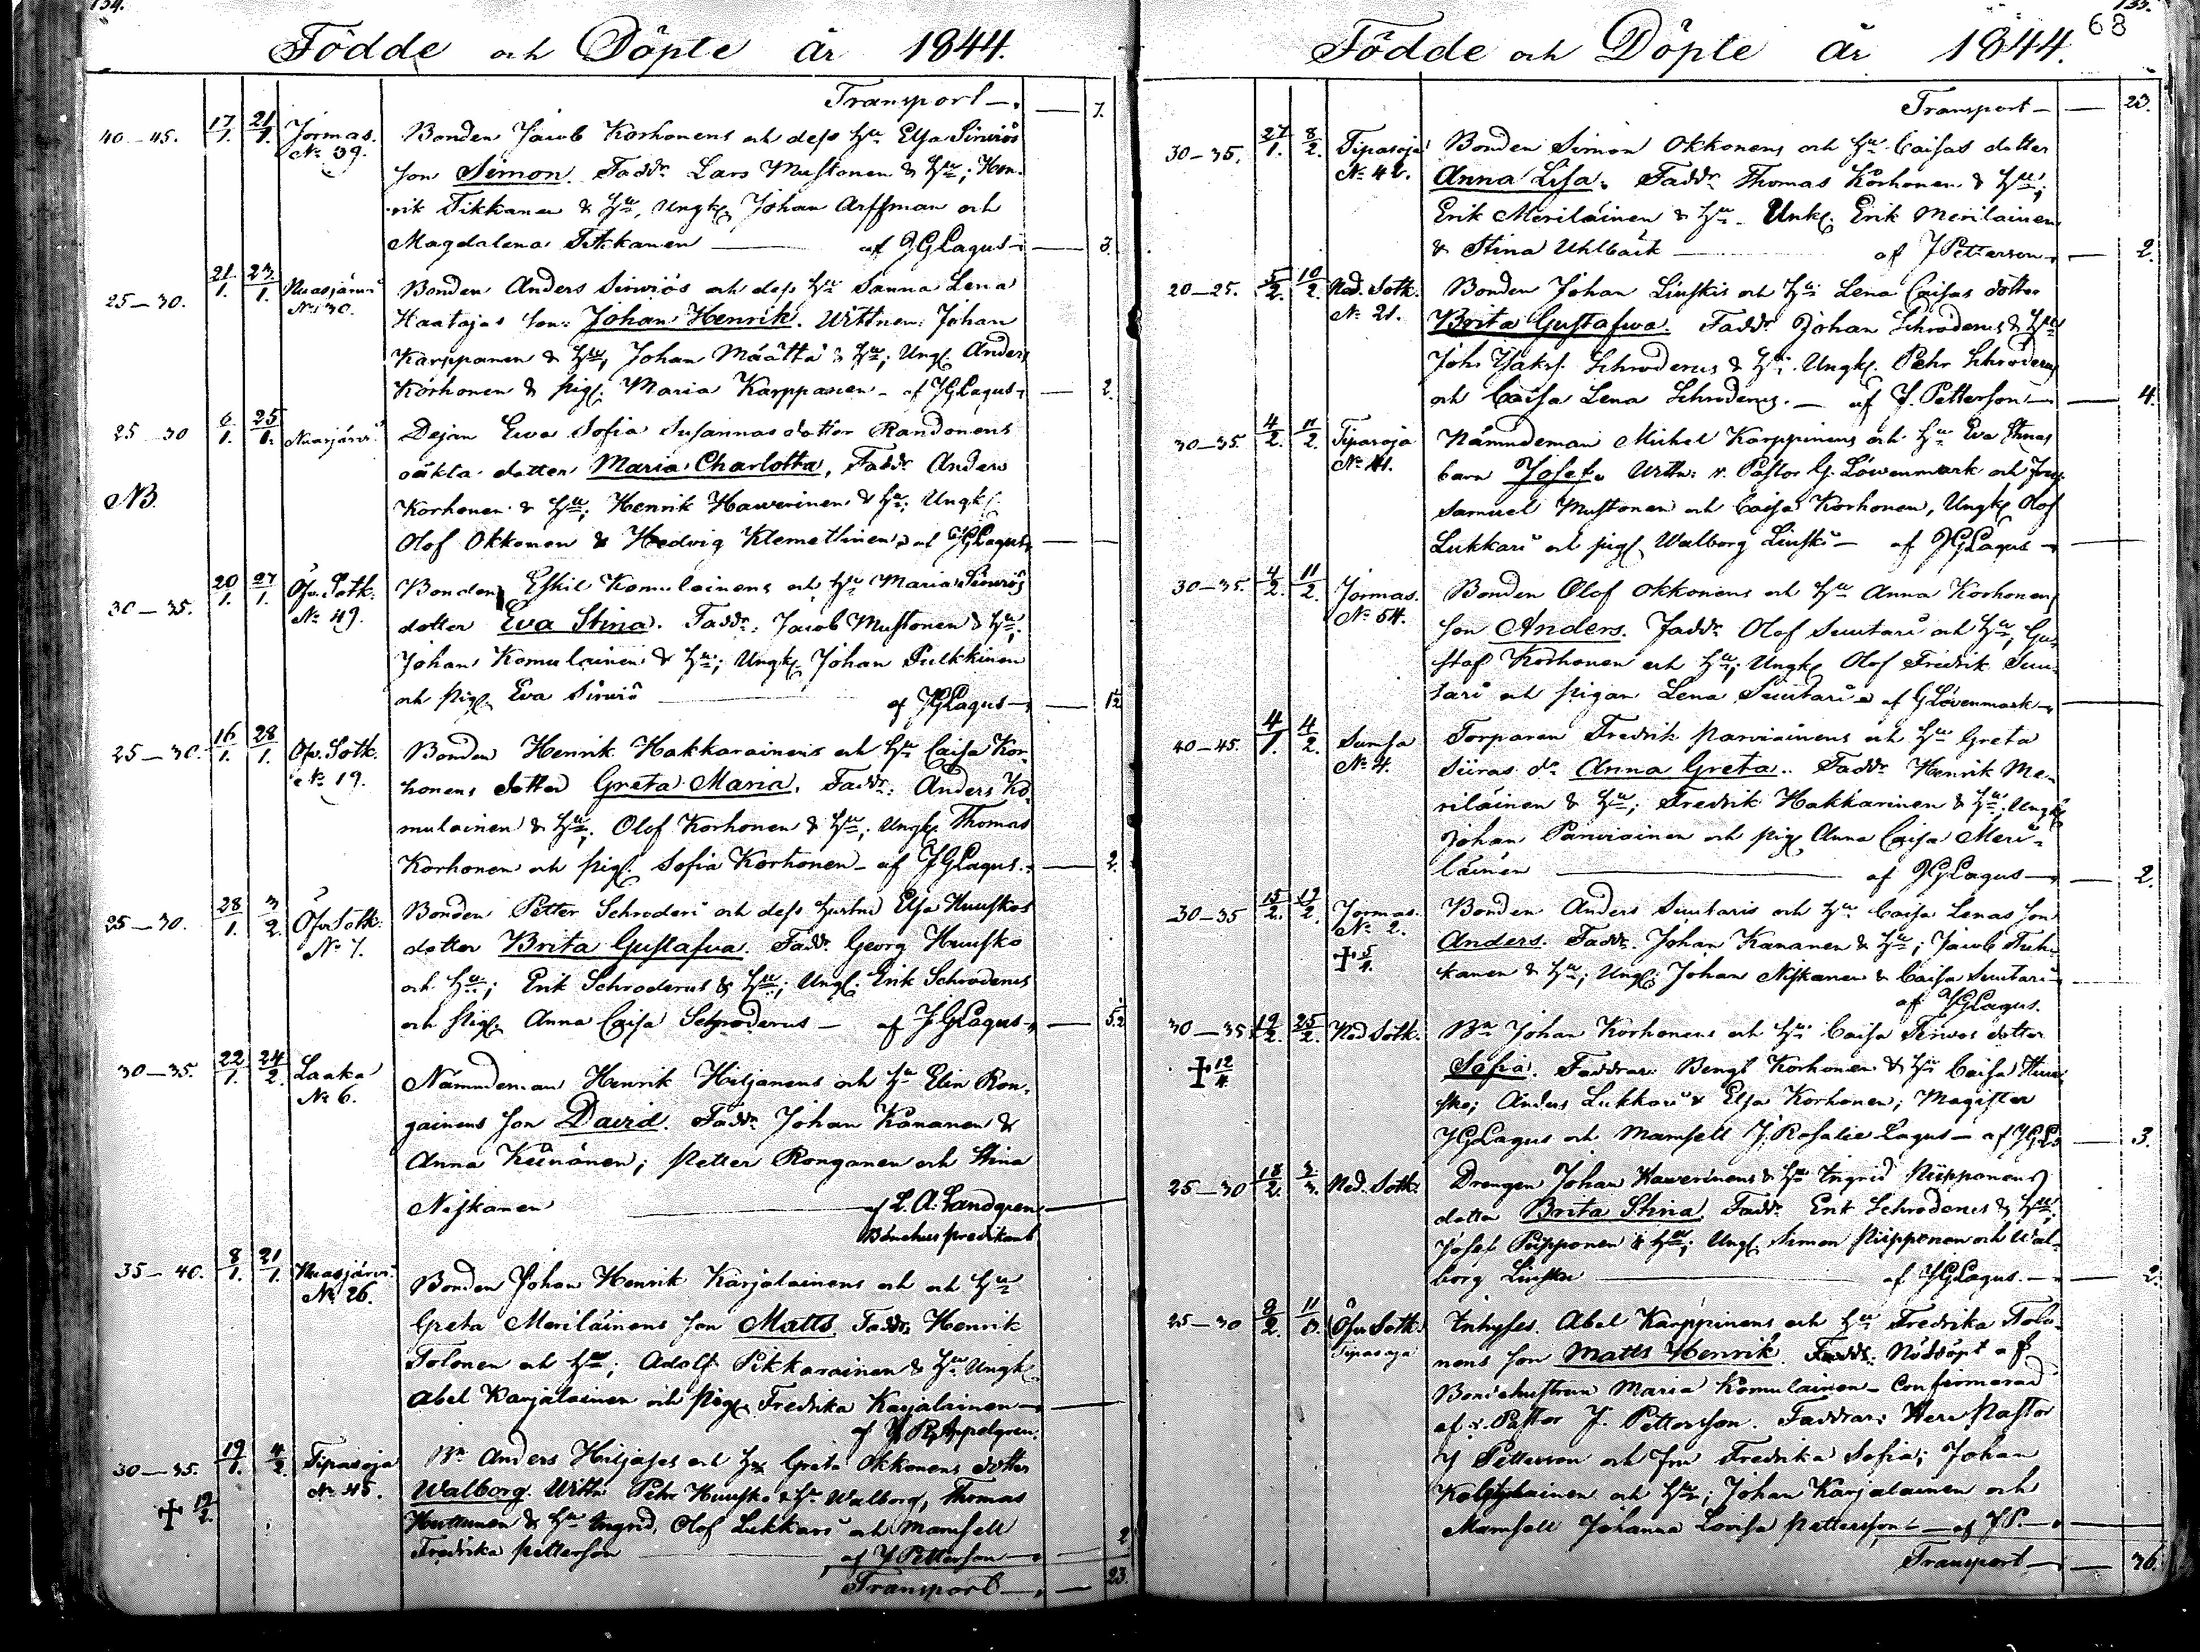 134.
Födde och Döpte år 1844.
Transport — 7.
40–45. 17/1. 21/1. Jormas. Bonden Jacob Korhonens och dess hu Elsa Sirviös
No 39. son Simon. Faddr Lars Mustonen & hu; Hen-
rik Tikkanen & hu, Ungk. Johan Arffman och
Magdalena Tikkanen — af JGLagus — 3.
25–30. 21/1. 23/1. Nuasjärvi Bonden Anders Sirviös och dess hu Sanna Lena
No 30. Haatajas son: Johan Henrik. Wittnen: Johan
Karppanen & hu, Johan Määttä & hu; Ungk. Anders
Korhonen & pig. Maria Karppanen – af JGLagus — 2.
25–30 6/1. 25/1. Nuasjärvi Dejan Ewa Sofia Susannas dotter Randonens
oäkta dotter Maria Charlotta, Faddr Anders
NB. Korhonen & hu; Henrik Hawerinen & hu; Ungk.
Olof Okkonen & Hedvig Klemettinen – af JGLagus —
30–35. 20/1. 27/1. Öfv. Sotk. Bonden Eskil Komulainens och hu Maria Sirviös
No 49. dotter Eva Stina. Faddr: Jacob Mustonen & hu;
Johan Komulainen & hu; Ungk. Johan Pulkkinen
och pig. Eva Sirviö — af JGLagus — 1½
25–30. 16/1. 28/1. Öfv. Sotk. Bonden Henrik Hakkarainens och hu Caisa Kor-
No 19. honens dotter Greta Maria. Faddr: Anders Ko-
mulainen & hu; Olof Korhonen & hu; Ungk. Thomas
Korhonen och pig. Sofia Korhonen – af JGLagus. — 2.
25–30. 28/1. 3/2. Öfv Sotk. Bonden Petter Schroderi och dess hustru Elsa Huuskos
No 7. dotter Brita Gustafva. Faddr Georg Huusko
och hu; Erik Schroderus & hu; Ungk. Erik Schroderus
och pig. Anna Caisa Schroderus — af JGLagus —
30–35. 22/1. 24/2. Laaka Nämndeman Henrik Hiljanens och hu Elin Ron-
No 6. gainens son David. Faddr Johan Kananen &
Anna Keinänen; Petter Ronganen och Stina
Niskanen — af L. A. Landgren
Bönehus predikant
35–40. 8/1. 21/1. Nuasjärvi Bonden Johan Henrik Karjalainens och och hu
No 26. Greta Meriläinens son Matts. Faddr Henrik
Tolonen och hu; Adolf Pikkarainen & hu Ungk.
Abel Karjalainen och pig. Fredrika Karjalainen —
af Appelgren.
30–35. 19/1. 4/2. Tipasoja Bn Anders Hiljases och hu Greta Okkonens dotter
No 45. Walborg. Wittn: Pehr Huusko & hu Walborg, Thomas
Huttunen & hu Ingrid, Olof Lukkari och Mamsell
Fredrika Petterson — af J Petterson — 2
Transport — 23.
68
Födde och Döpte år 1844.
Transport — 23.
30–35. 27/1. 8/2. Tipasoja Bonden Simon Okkonens och hu Caisas dotter
No 42. Anna Lisa. Faddr Thomas Korhonen & hu;
Erik Meriläinen & hu. Unk. Erik Merilainen
& Stina Uhlbäck — af J Petterson — 2.
20–25. 5/2. 10/2. Ned. Sotk. Bonden Johan Liuskis och hu Lena Caisas dotter
No 21. Brita Gustafwa. Faddr Johan Schroderus & hu
Joh. Schroderus & hu. Ungk. Pehr Schroderus
och Caisa Lena Schroderus. — af J. Petterson — 4.
30–35. 4/2. 11/2. Tipasoja Nämndeman Michel Karppinens och hu Eva Stinas
No 41. barn Josef. Wittn: v. Pastor G. Löwenmark och
Samuel Mustonen och Caisa Korhonen, Ungk. Olof
Lukkari och pig. Walborg Liuski — af JGLagus —
30–35. 4/2. 11/2. Jormas. Bonden Olof Okkonens och hu Anna Korhonens
No 54. son Anders. Faddr Olof Suutari och hu; Gu-
staf Korhonen och hu; Ungk. Olof Fredrik Suu-
tari och pigan Lena Suutari – af GLövenmark —
40–45. 4/1. 4/2. Sumsa Torparen Fredrik Parviainens och hu Greta
No 4. Siiras dr Anna Greta. Faddr Henrik Me-
riläinen & hu; Fredrik Hakkarinen & hu; Ungk.
Johan Parviainen och pig. Anna Caisa Meri-
läinen — af JGLagus — 2.
30–35 15/2. 19/2. Jormas. Bonden Anders Suutaris och hu Caisa Lenas son
No 2. Anders. Faddr. Johan Kananen & hu; Jacob Tuh-
† 5/4. kanen & hu; Ungk. Johan Niskanen & Caisa Suutari —
af JGLagus.
30–35 19/2. 25/2. Ned Sotk. Bn Johan Korhonens och hu Caisa Tervos dotter
† 12/4 Sofia. Faddrar: Bengt Korhonen & hu Caisa Huu-
sko; Anders Lukkari & Elsa Korhonen; Magister
JGLagus och Mamsell J. Rosalie Lagus — af JGLs — 3.
25–30 18/2. 3/3. Ned. Sotk. Drengen Johan Hawerinens & hu Ingrid Piipponens
dotter Brita Stina. Faddr. Erik Schroderus & hu;
Josef Piipponen & hu; Ungk. Simon Piipponen och Wal-
borg Liuski — af JGLagus. — 2.
25–30 9/2. 11/3. Öfv Sotk. Inhyses. Abel Karppinens och hu Fredrika Tolo-
Tipasoja nens son Matts Henrik. Faddr: Nöddöpt af
Bondehustrun Maria Komulainen – Confirmerad
af v. Pastor J. Petterson. Faddrar: Herr Pastor
J Petterson och fru Fredrika Sofia; Johan
och hu; Johan Karjalainen och
Mamsell Johanna Lovisa Petterson — af JP. —
Transport — 36.